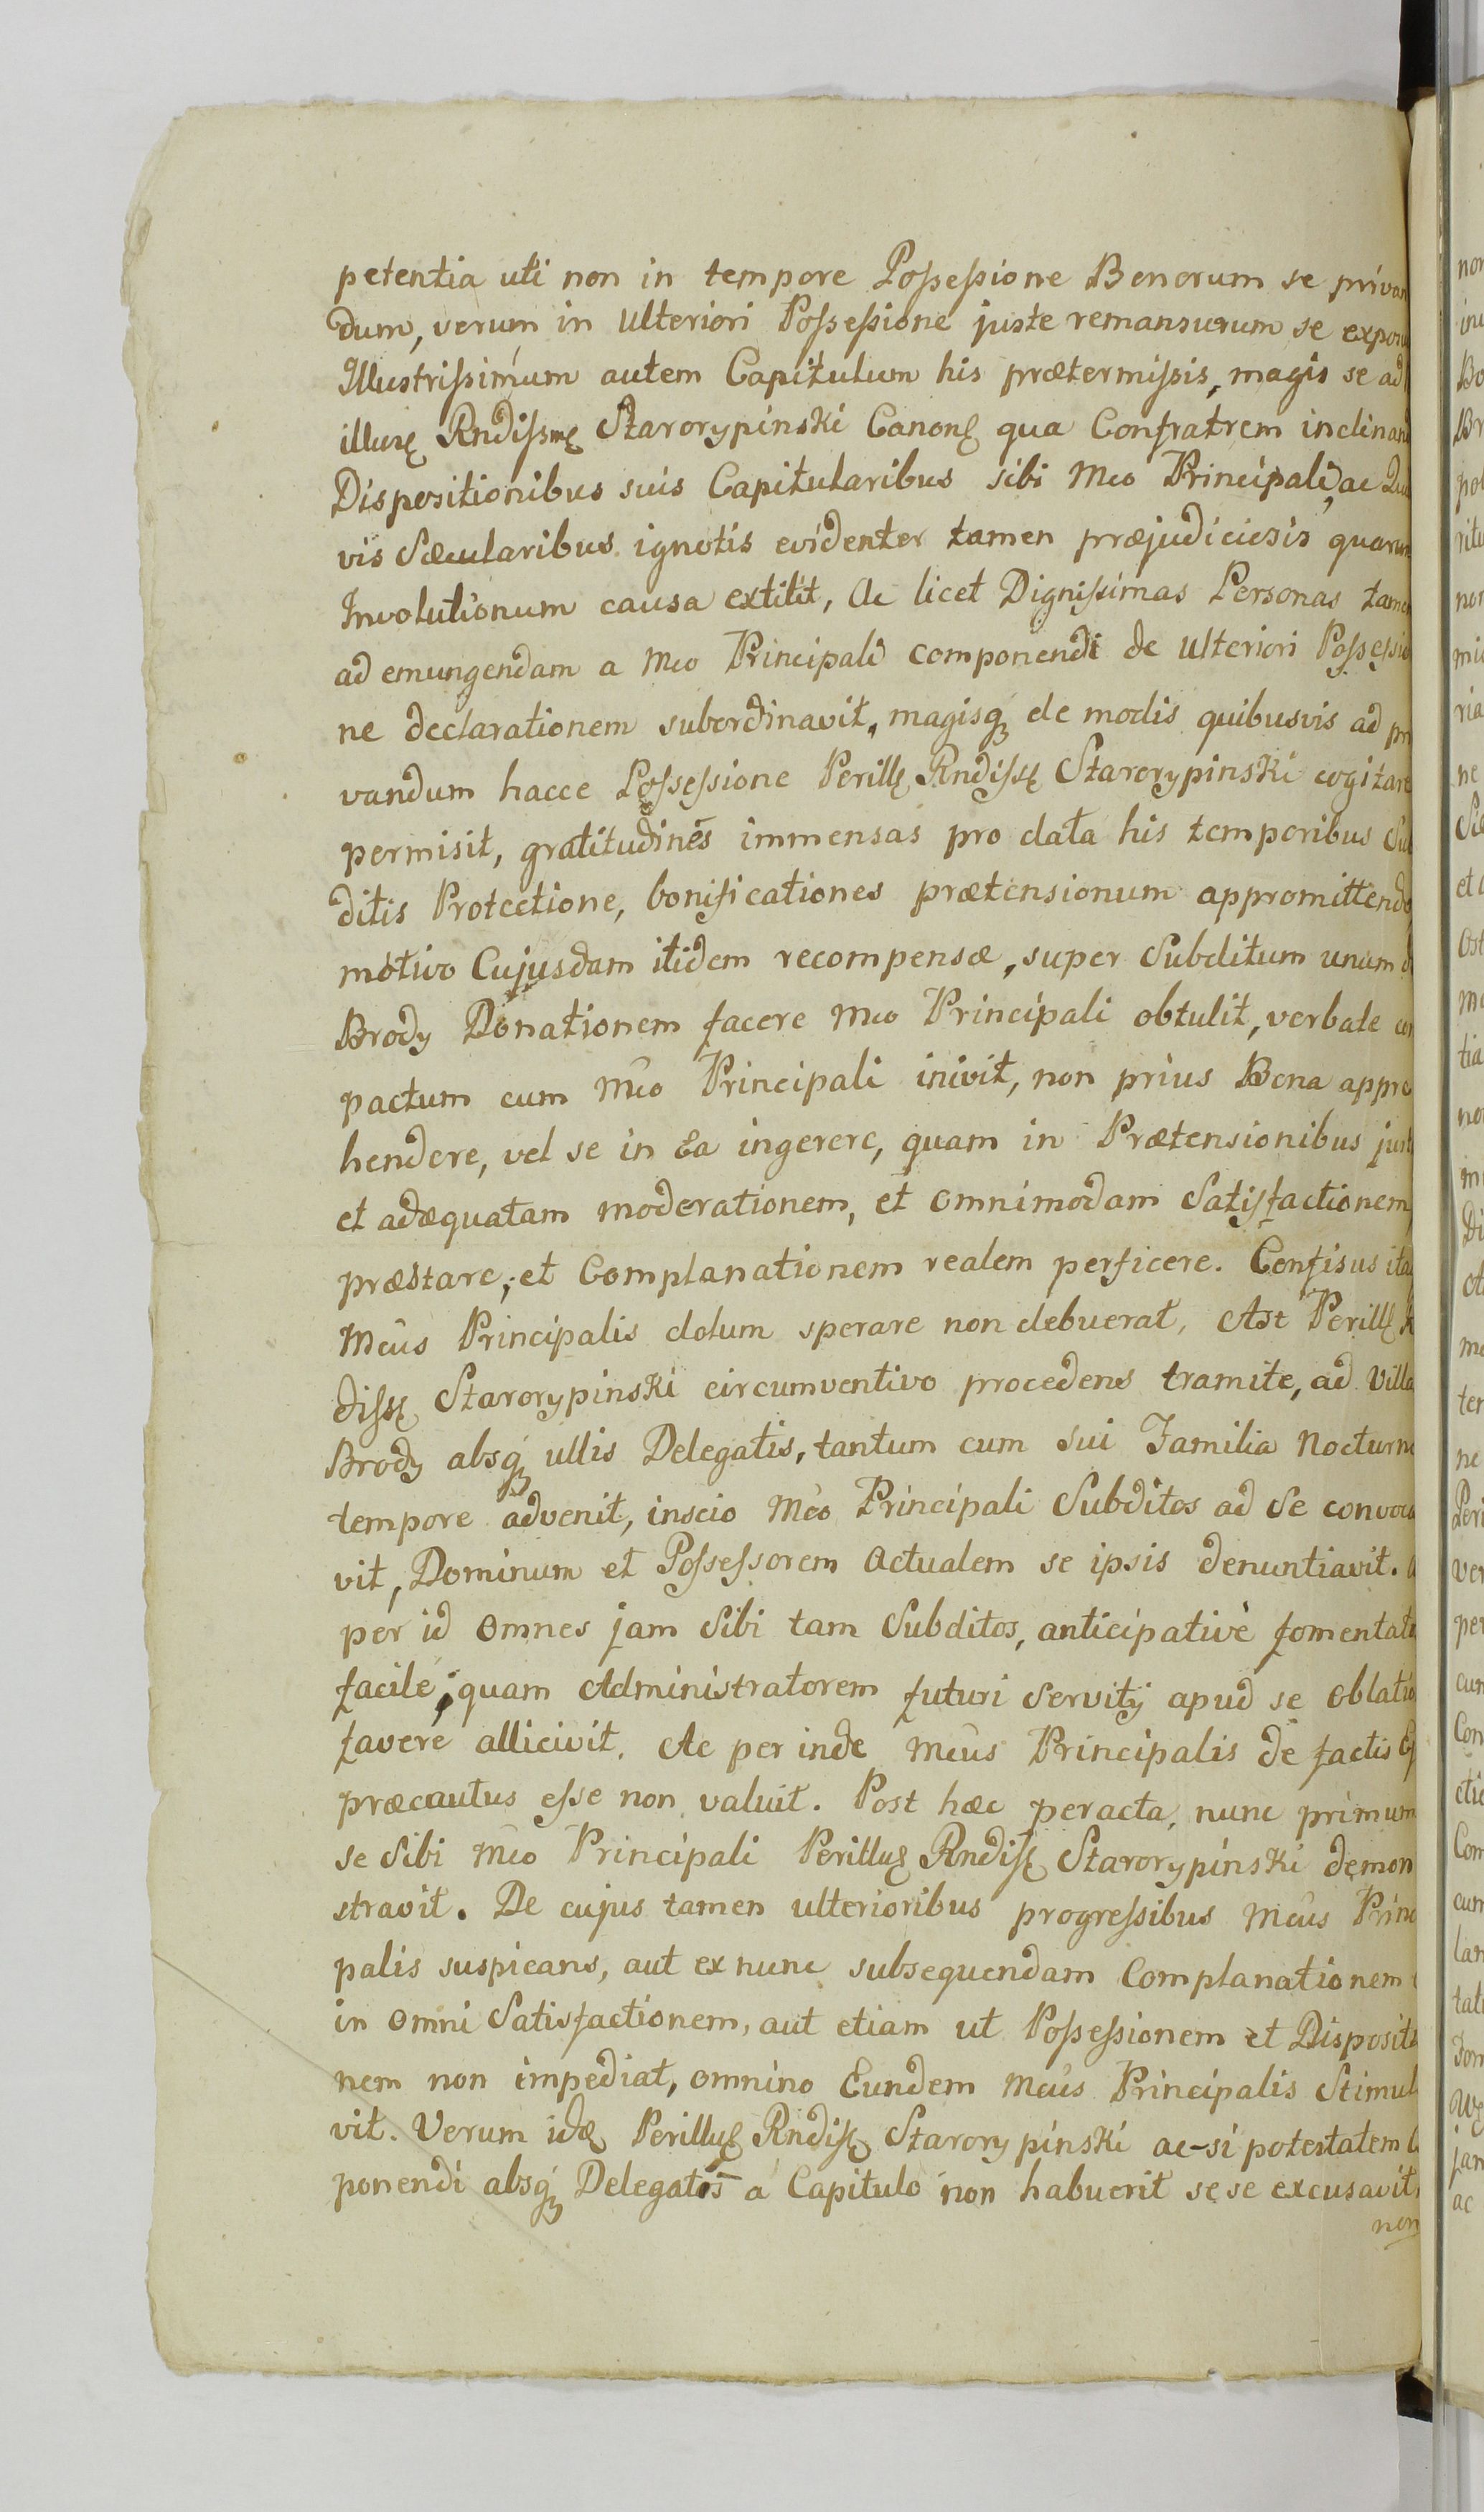 petentia uti non in tempore Poſseſsione Bonorum se privan
dum, verum in Ulteriori Poſseſsione juste remansurum se expo
Illustriſsimum autem Capitulum his prætermiſsis, magis se ad
Rndiſsmę Starorypinski Canonę qua Confratrem inclinan
Dispositionibus suis Capitularibus sibi Meo Principali, ac
vis Sæcularibus ignotis evidenter tamen præjudiciosis quarum
Involutionum causa extitit, Ac licet Digniſsimas Personas tamen
ad emungendam a Meo Principali componendi de Ulteriori Poſseſsio
ne declarationem subordinavit, magisq de modis quibusvis ad pri
vandum hacce Poſseſsione Perillę Rndiſsę Starorypinski cogitare
permisit, gratitudines immensas pro data his temporibus Sub
ditis Protectione, bonificationes prætensionum appromittendo
motivo Cujusdam itidem recompensæ, super Subditum unum d
Brody Donationem facere Meo Principali obtulit, verbale com
pactum cum Meo Principali inivit, non prius Bona appre
hendere, vel se in Ea ingerere, quam in Prætensionibus just
et adæquatam moderationem, et omnimodam Satisfactionem
præstare, et Complanationem realem perficere. Confisus ita
Meus Principalis dolum sperare non debuerat, Ast Perillę R
diſsę Starorypinski circumventivo procedens tramite, ad Villa
Brody absq ullis Delegatis, tantum cum sui Familia Nocturno
tempore advenit, inscio Meo Principali Subditos ad Se convoca
vit, Dominum et Poſseſsorem Actualem se ipsis denuntiavit.
per id Omnes jam Sibi tam Subditos, anticipative fomentato
facile, quam Administratorem futuri Servitij apud se oblatio
favere allicivit. Ac per inde Meus Principalis de factis Ej
præcautus eſse non valuit. Post hæc peracta, nunc primum
se Sibi Meo Principali Perillusę Rndiſsę Starorypinski demon
stravit. De cujus tamen ulterioribus progreſsibus Meus Princ
palis suspicans, aut ex nunc subsequendam Complanationem
in Omni Satisfactionem, aut etiam ut Poſseſsionem et Dispositi
nem non impediat, omnino Eundem Meus Principalis Stimul
vit. Verum idę Perillusę Rndiſsę Starorypinski ac-si potestatem
ponendi absq Delegatis a Capitulo non habuerit sese excusavit,
non